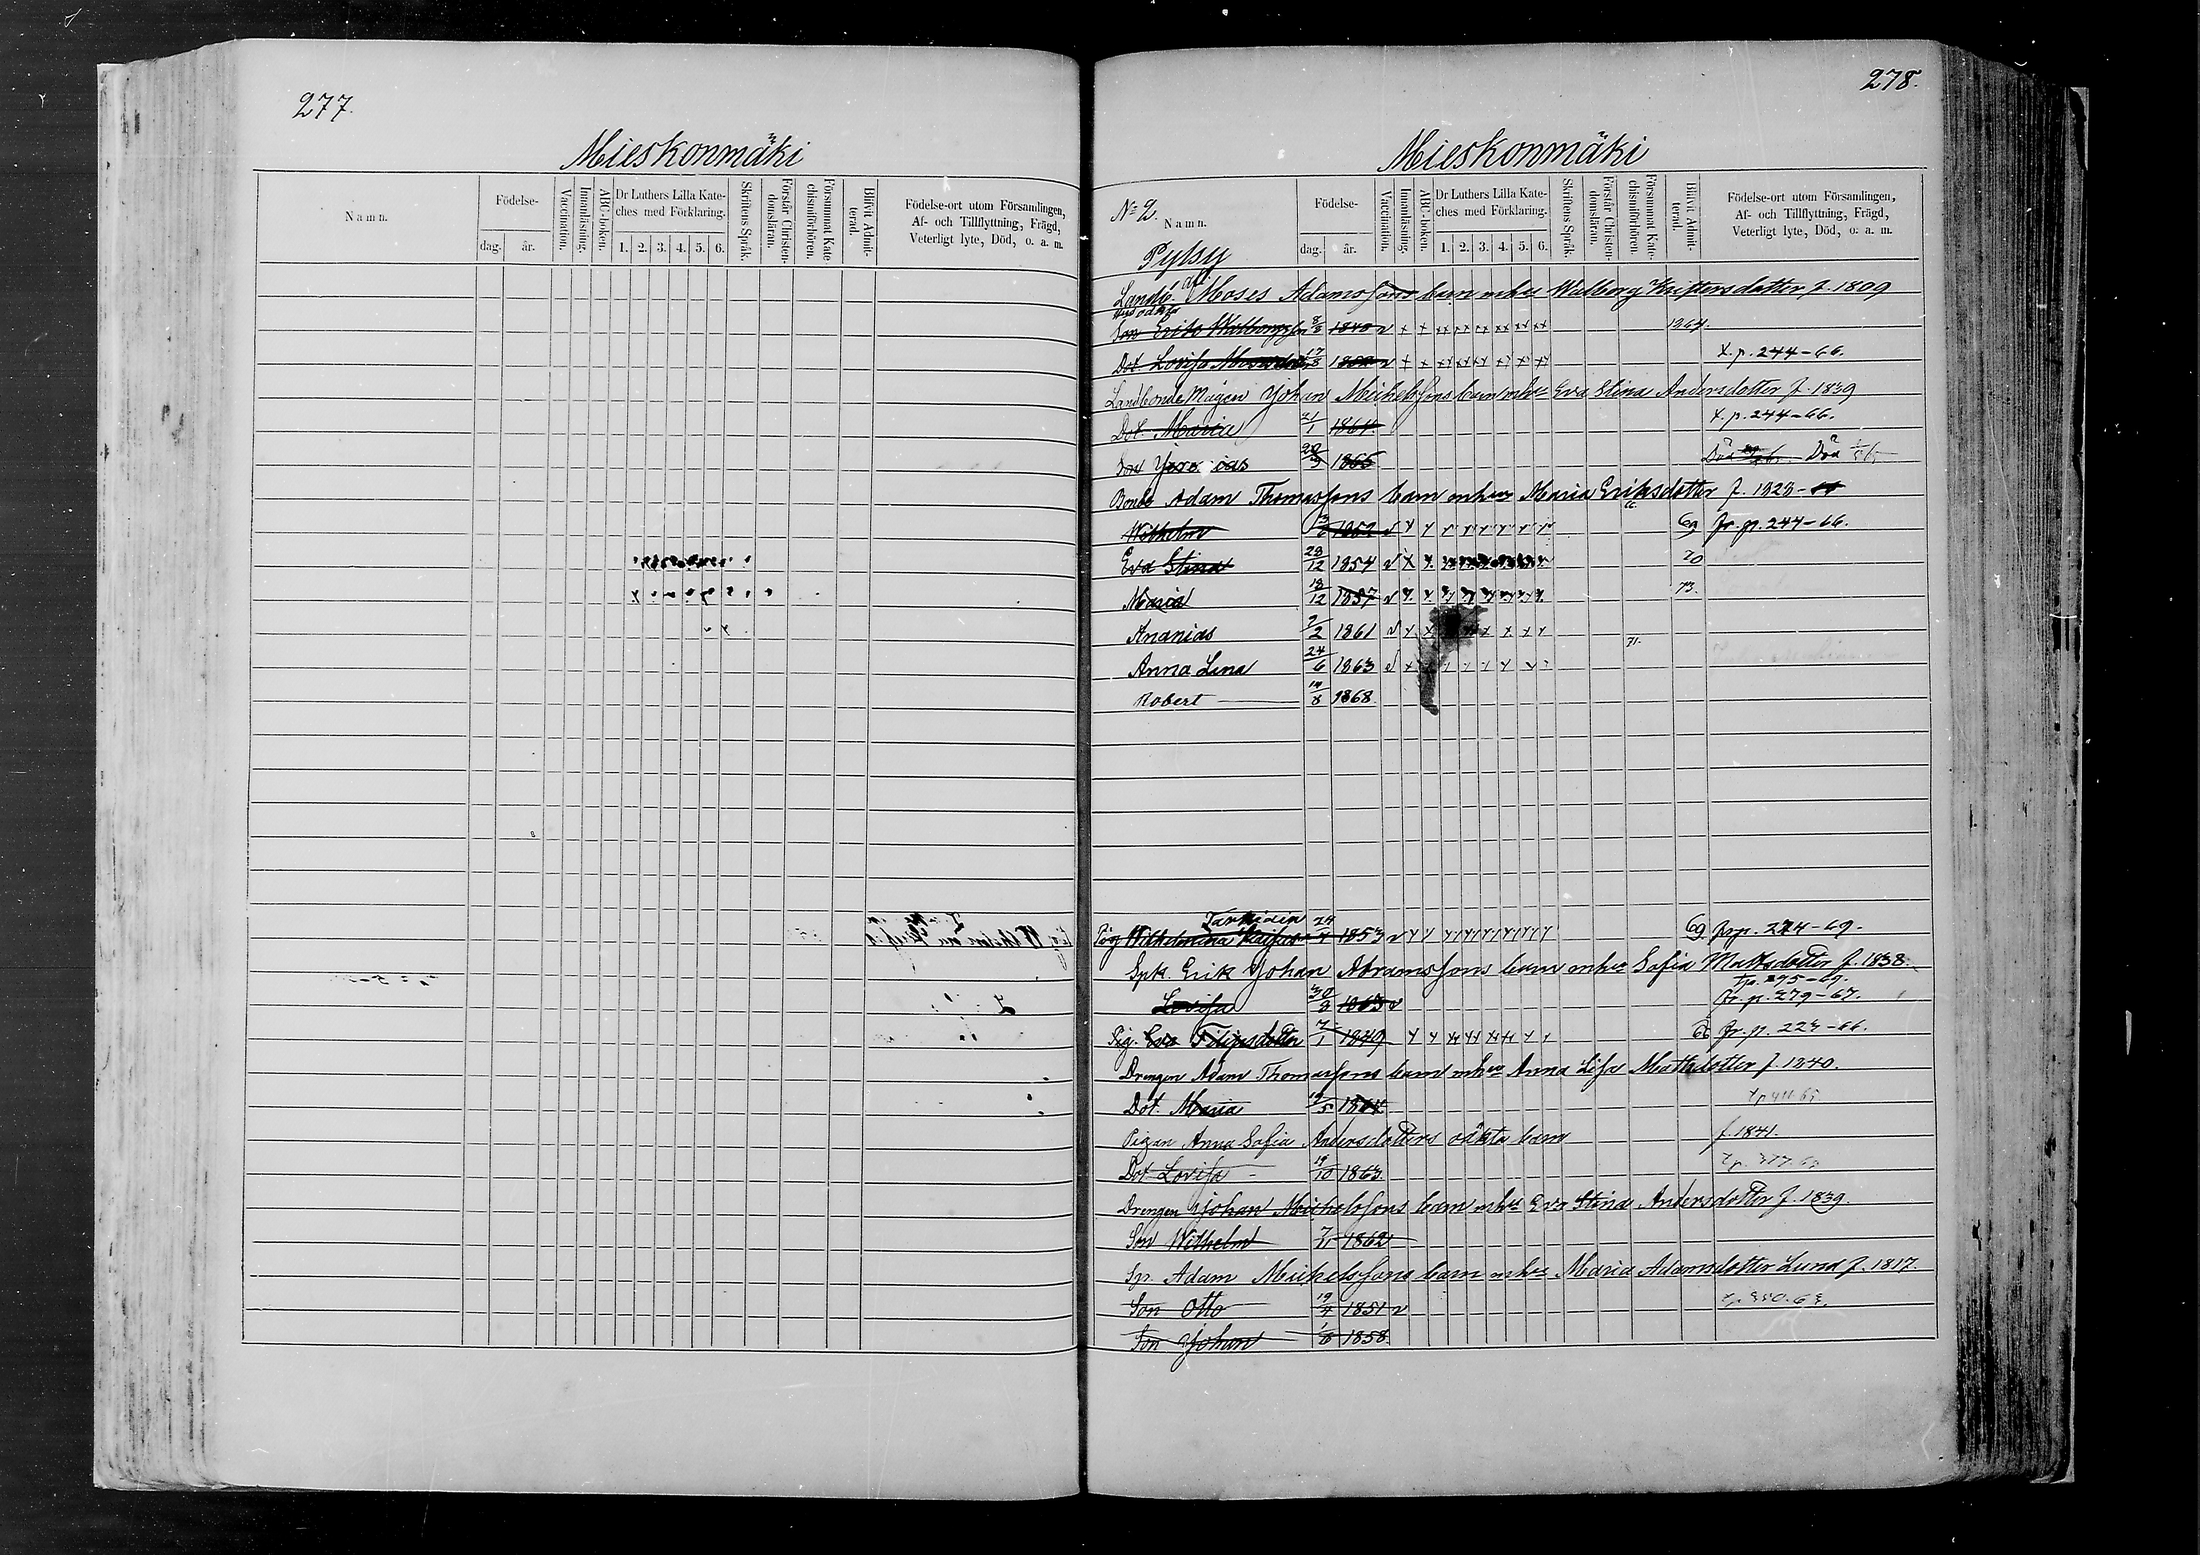 277.
Mieskonmäki
Namn.
Födelse-
dag. år.
Vaccination.
Innanläsning.
ABC-boken.
Dr Luthers Lilla Kate-
ches med Förklaring.
1. 2. 3. 4. 5. 6.
Skriftens Språk.
Förstår Christen-
domsläran.
Försummat Kate-
chismiförhören.
Blifvit Admit-
terad.
Födelse-ort utom Församlingen,
Af- och Tillflyttning, Frägd,
Veterligt lyte, Död, o. a. m.
278.
Mieskonmäki
No 2.
Namn.
Födelse-
dag. år.
Vaccination.
Innanläsning.
ABC-boken.
Dr Luthers Lilla Kate-
ches med Förklaring.
1. 2. 3. 4. 5. 6.
Skriftens Språk.
Förstår Christen-
domsläran.
Försummat Kate-
chismiförhören.
Blifvit Admit-
terad.
Födelse-ort utom Församlingen,
Af- och Tillflyttning, Frägd,
Veterligt lyte, Död, o. a. m.
Pylsy
Landb. Moses Adamssons barn m hu Walborg f. 1809
Son 8/3 1840 v x x xx xx xx xx xx xx 1864.
Dot. Lovisa 17/3 v x x t. p. 244-66.
Landbonde Mågen Johan Michelssons barn m hu Eva Stina Andersdotter f. 1839
Dot. Maria 21/1 1864. t. p. 244-66.
Son 1865 Död
Bonde Adam Thomassons barn m hu Maria Eriksdotter f. 1823
Wilhelm 1852 v 69 fr. p. 244-66.
Eva Stina 28/12 1854 v 70
Maria 18/12 1857 v 73.
Ananias 9/2 1861 v 71.
Anna Lena 24/6 1863 v
Robert 1868.
Pig Wilhelmina 24/4 1853 v 69 69.
Spk. Erik Johan Abramssons barn m hu Sofia Mattsdotter f. 1838.
t p. 275-69
Lovisa 30/8 1863 v fr. p. 279-67.
Pig. Eva Filipsdotter 7/1 1849 fr. p. 223-66.
Drengen Adam Thomassons barn m hu Anna Lisa Mattsdotter f. 1840.
Dot. Maria 19/5 1864
Pigan Anna Sofia Andersdotters oäkta barn f. 1841.
Dot Lovisa 19/10 1863.
Drengen Johan Michelssons barn m hu Eva Stina Andersdotter f. 1839.
Son Wilhelm 1862
Sp. Adam Michelssons barn m hu Maria Adamsdotter Luna f. 1817.
Son Otto 19/4 1851 v
Son Johan 1/8 1858.